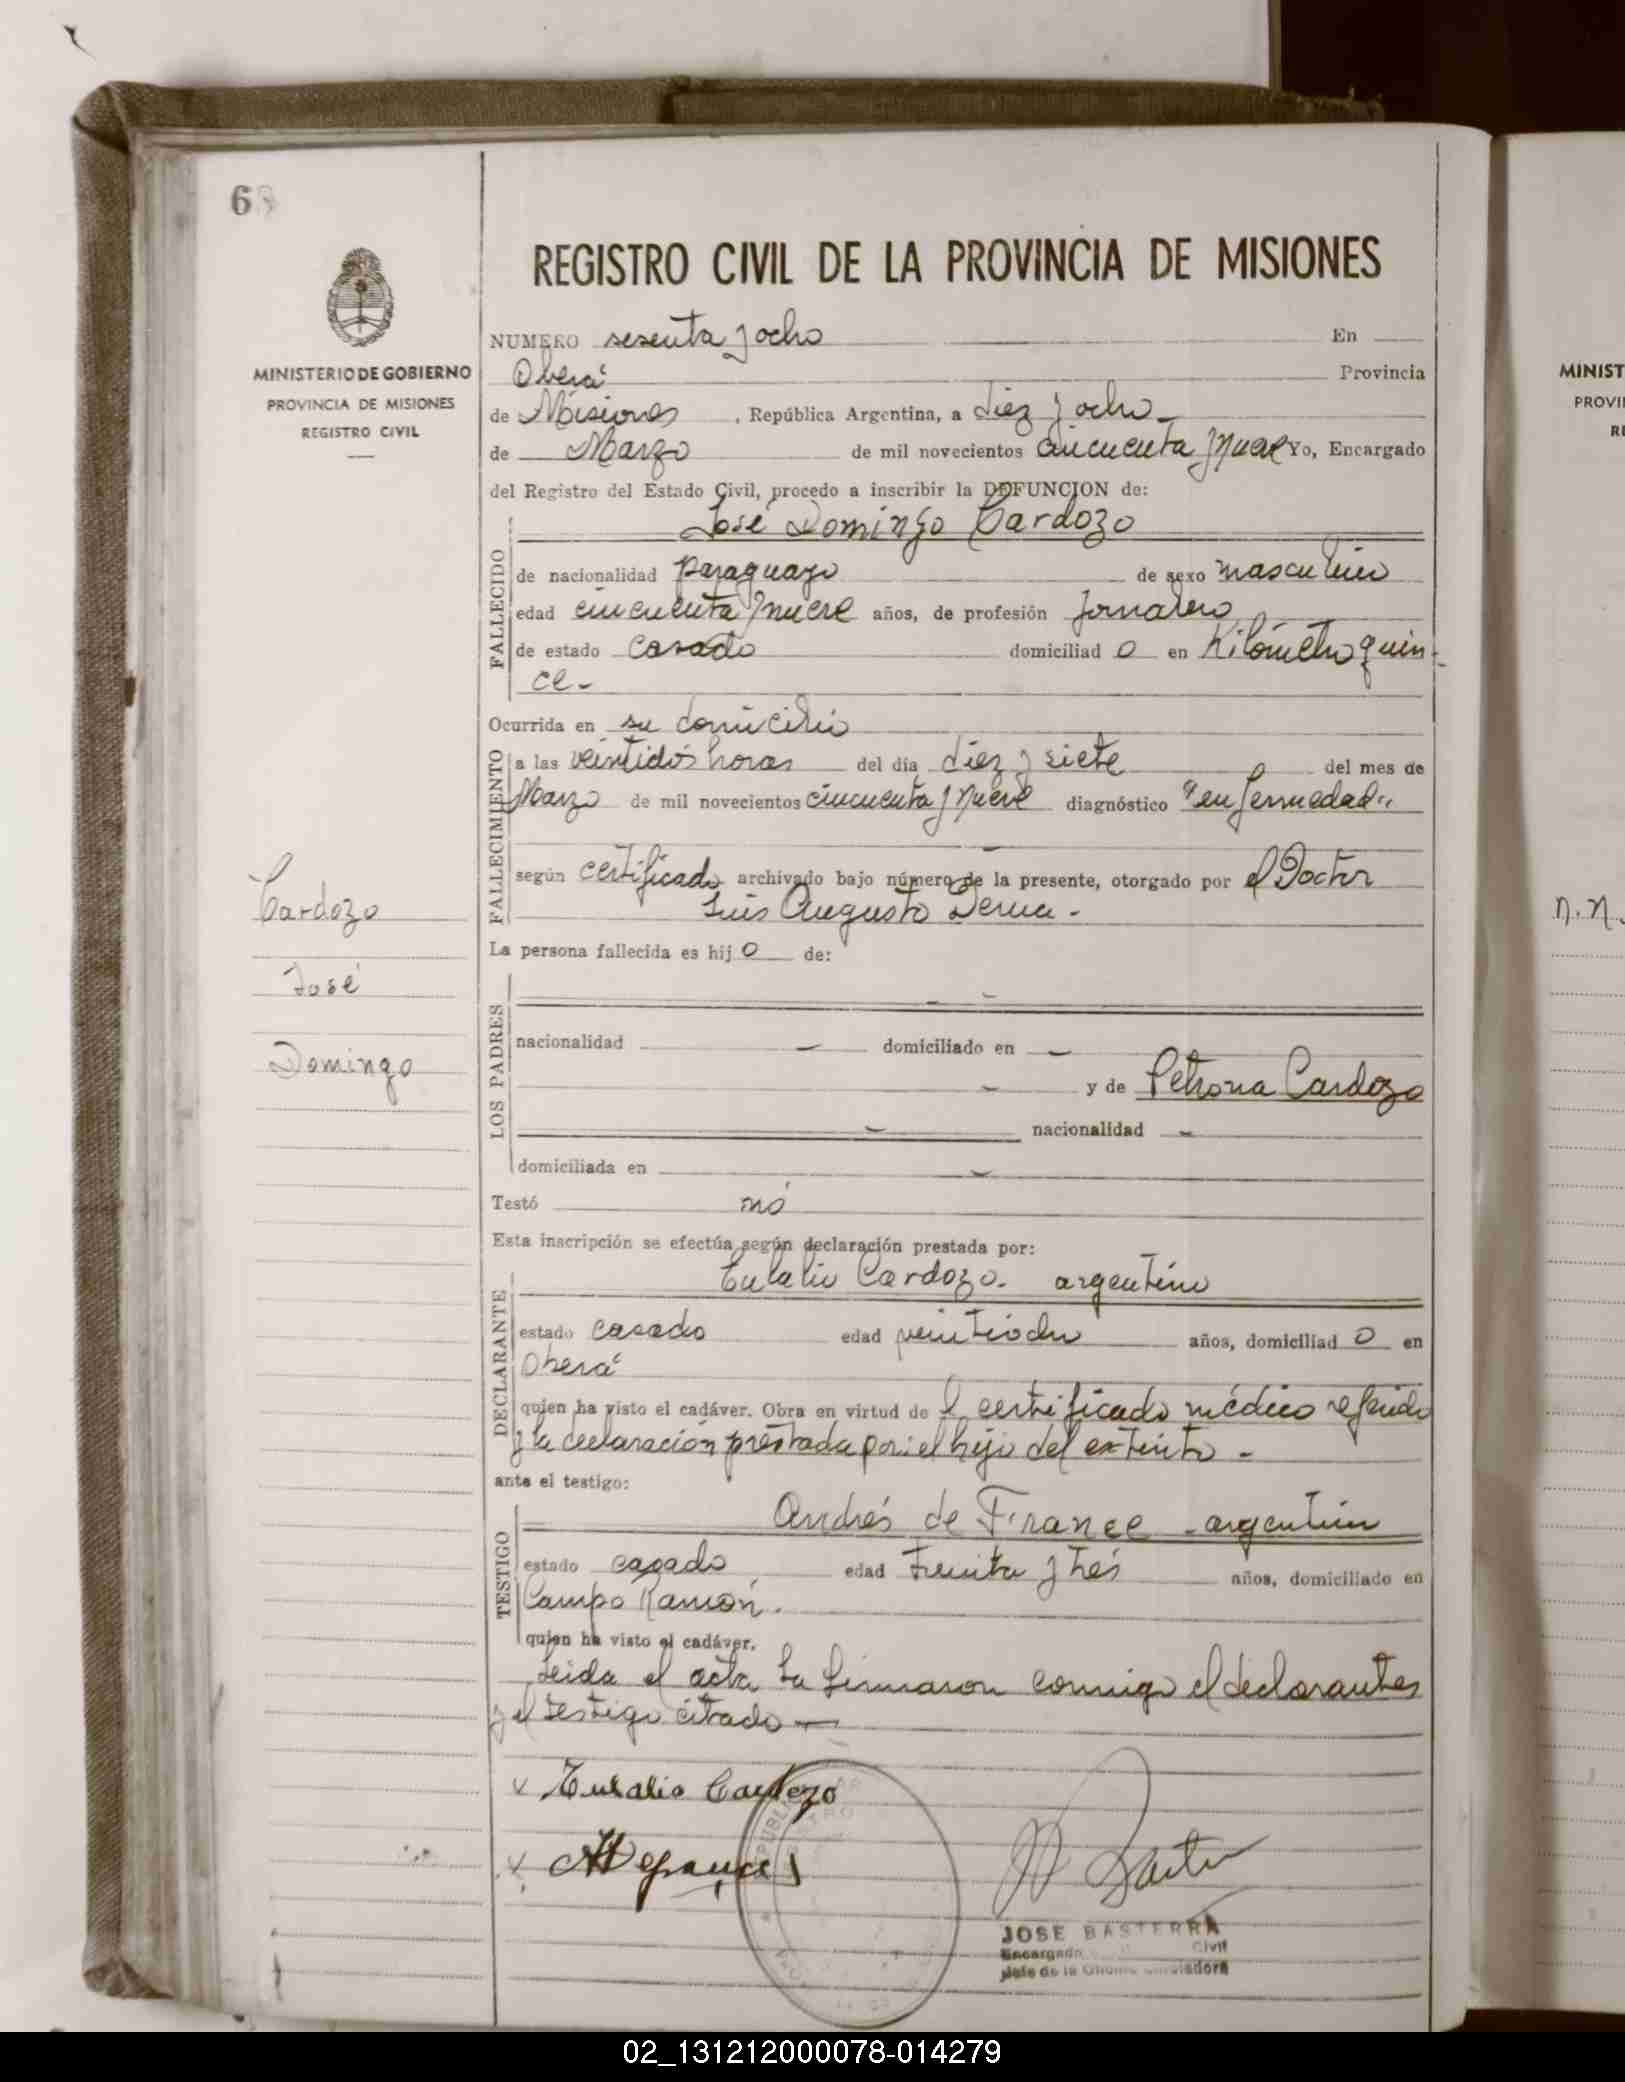 68
REGISTRO CIVIL DE LA PROVINCIA DE MISIONES
MINISTERIO DE GOBIERNO
PROVINCIA DE MISIONES
REGISTRO CIVIL
NUMERO sesenta y ocho En
Oberá Provincia
de Misiones, República Argentina, a diez y ocho
de Marzo de mil novecientos cincuenta y nueve Yo, Encargado
del Registro del Estado Civil, procedo a inscribir la DEFUNCION de:
José Domingo Cardozo
FALLECIDO
de nacionalidad paraguayo de sexo masculino
edad cincuenta y nueve años, de profesión jornalero
de estado casado domiciliado en Kilómetro quin-
ce.-
Ocurrida en su domicilio
FALLECIMIENTO
a las veintidós horas del día diez y siete del mes de
Marzo de mil novecientos cincuenta y nueve diagnóstico "enfermedad"
según certificado archivado bajo número de la presente, otorgado por el Doctor
Luis Augusto -
Cardozo
José
Domingo
La persona fallecida es hijo de:
LOS PADRES
nacionalidad - domiciliado en -
- y de Petrona Cardozo
- nacionalidad -
domiciliada en -
Testó nó
Esta inscripción se efectúa según declaración prestada por:
DECLARANTE
Eulalio Cardozo. argentino
estado casado edad veintiocho años, domiciliado en
Oberá
quien ha visto el cadáver. Obra en virtud de l certificado médico referido
y la declaración prestada por: el hijo del extinto -
ante el testigo:
TESTIGO
Andrés de France - argentino
estado casado edad treinta y tres años, domiciliado en
Campo Ramón.
quien ha visto el cadáver.
Leida el acta la firmaron conmigo el declarantes
y el testigo citado —
x Eulalio Cardozo
x
JOSE BASTERRA
Encargado Civil
Jefe de la Oficina
MINIST
PROVI
RE
N.N.
02_131212000078-014279